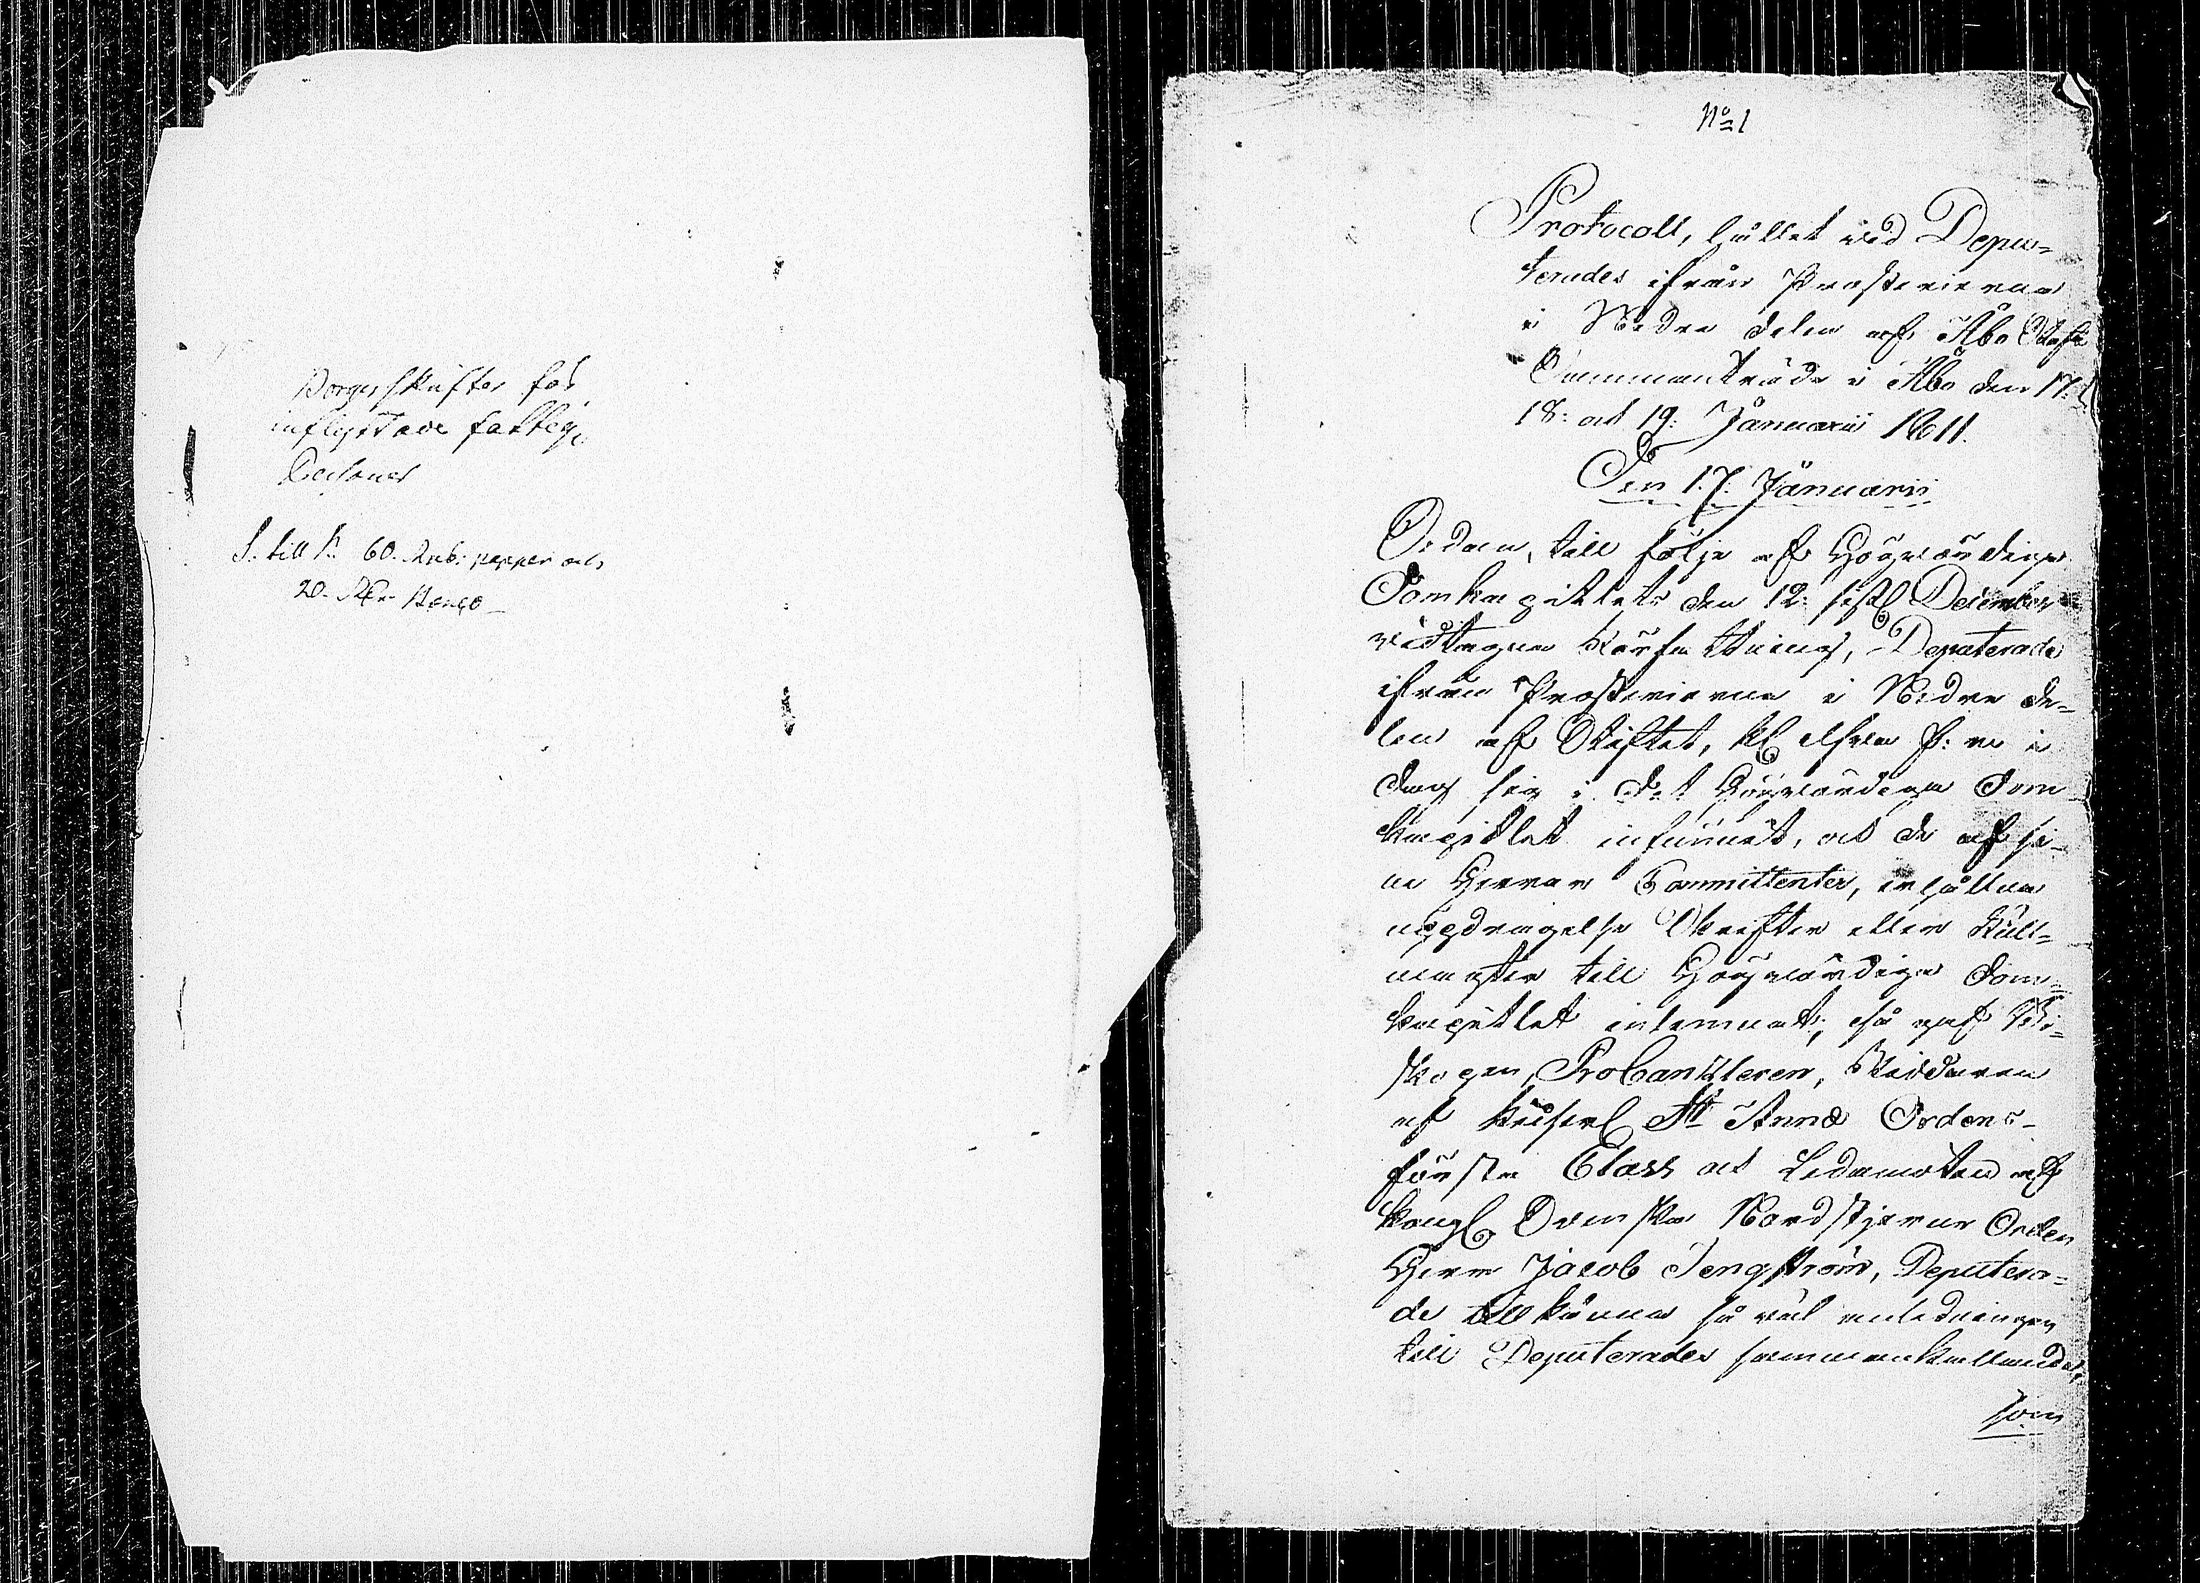 Borgesskrifter för
inflyttade fattige
Personer
S. till S. 60. Rub: papper och
20.
No 1
Protocoll, hållet vid Depu-
terades ifrån Prosterierna
i Nedre delen af Åbo Stift
Sammanträde i Åbo den 17:
18: och 19: Januarii 1811.
Den 17. Januarii
Sedan, till följe af Högvördige
Domkapitlets den 12. sistl December
vidtagne författning, Deputerade
ifrån Prosterierne i Nedre de-
len af Stiftet, kl elfva f: m i
dag sig i det Högvördiga Dom-
kapitlet infunnit, och de af si-
ne Herrar Committenter, erhållna
uppdragelse Skrifter eller Full-
magter till Högvördiga Dom-
kapitlet inlemnat; så gaf Bi-
skopen, ProCantzleren, Riddaren
af Keiserl St Annæ Ordens
förste Class och Ledamoten af
Kongl Svenska Nordstjerne Orden
Herr Jacob Tengström, Deputera-
de tillkänna så väl anledningen
till Deputerades sammankallande,
som